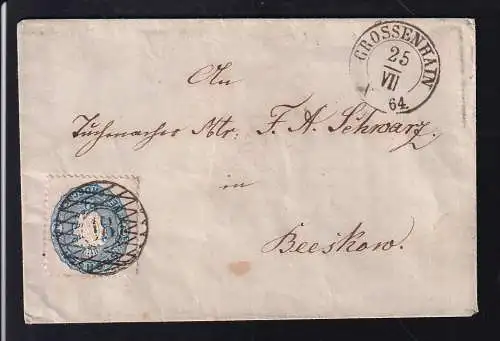 GROSSENHAIN
25
VII
64
An
Tuchmacher Mtr: F. A. Schwarz
in
Beeskow.